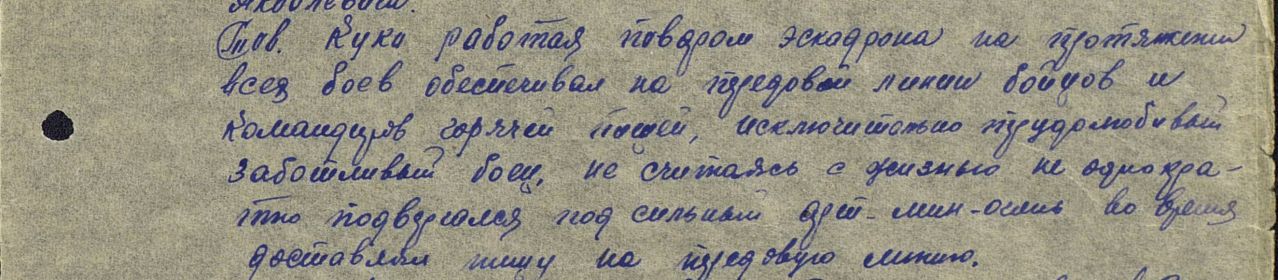 Яковлевич.
Тов. Куко работая поваром эскадрона на протяжении
всех боев обеспечивал на предовой линии бойцов и
командиров горячей пищей, исключительно трудолюбивый
заботливый боец, не считаясь с жизнью не однокра-
тно подвергался под сильный арт-мин-огонь во время
доставляя пищу на предовую линию.